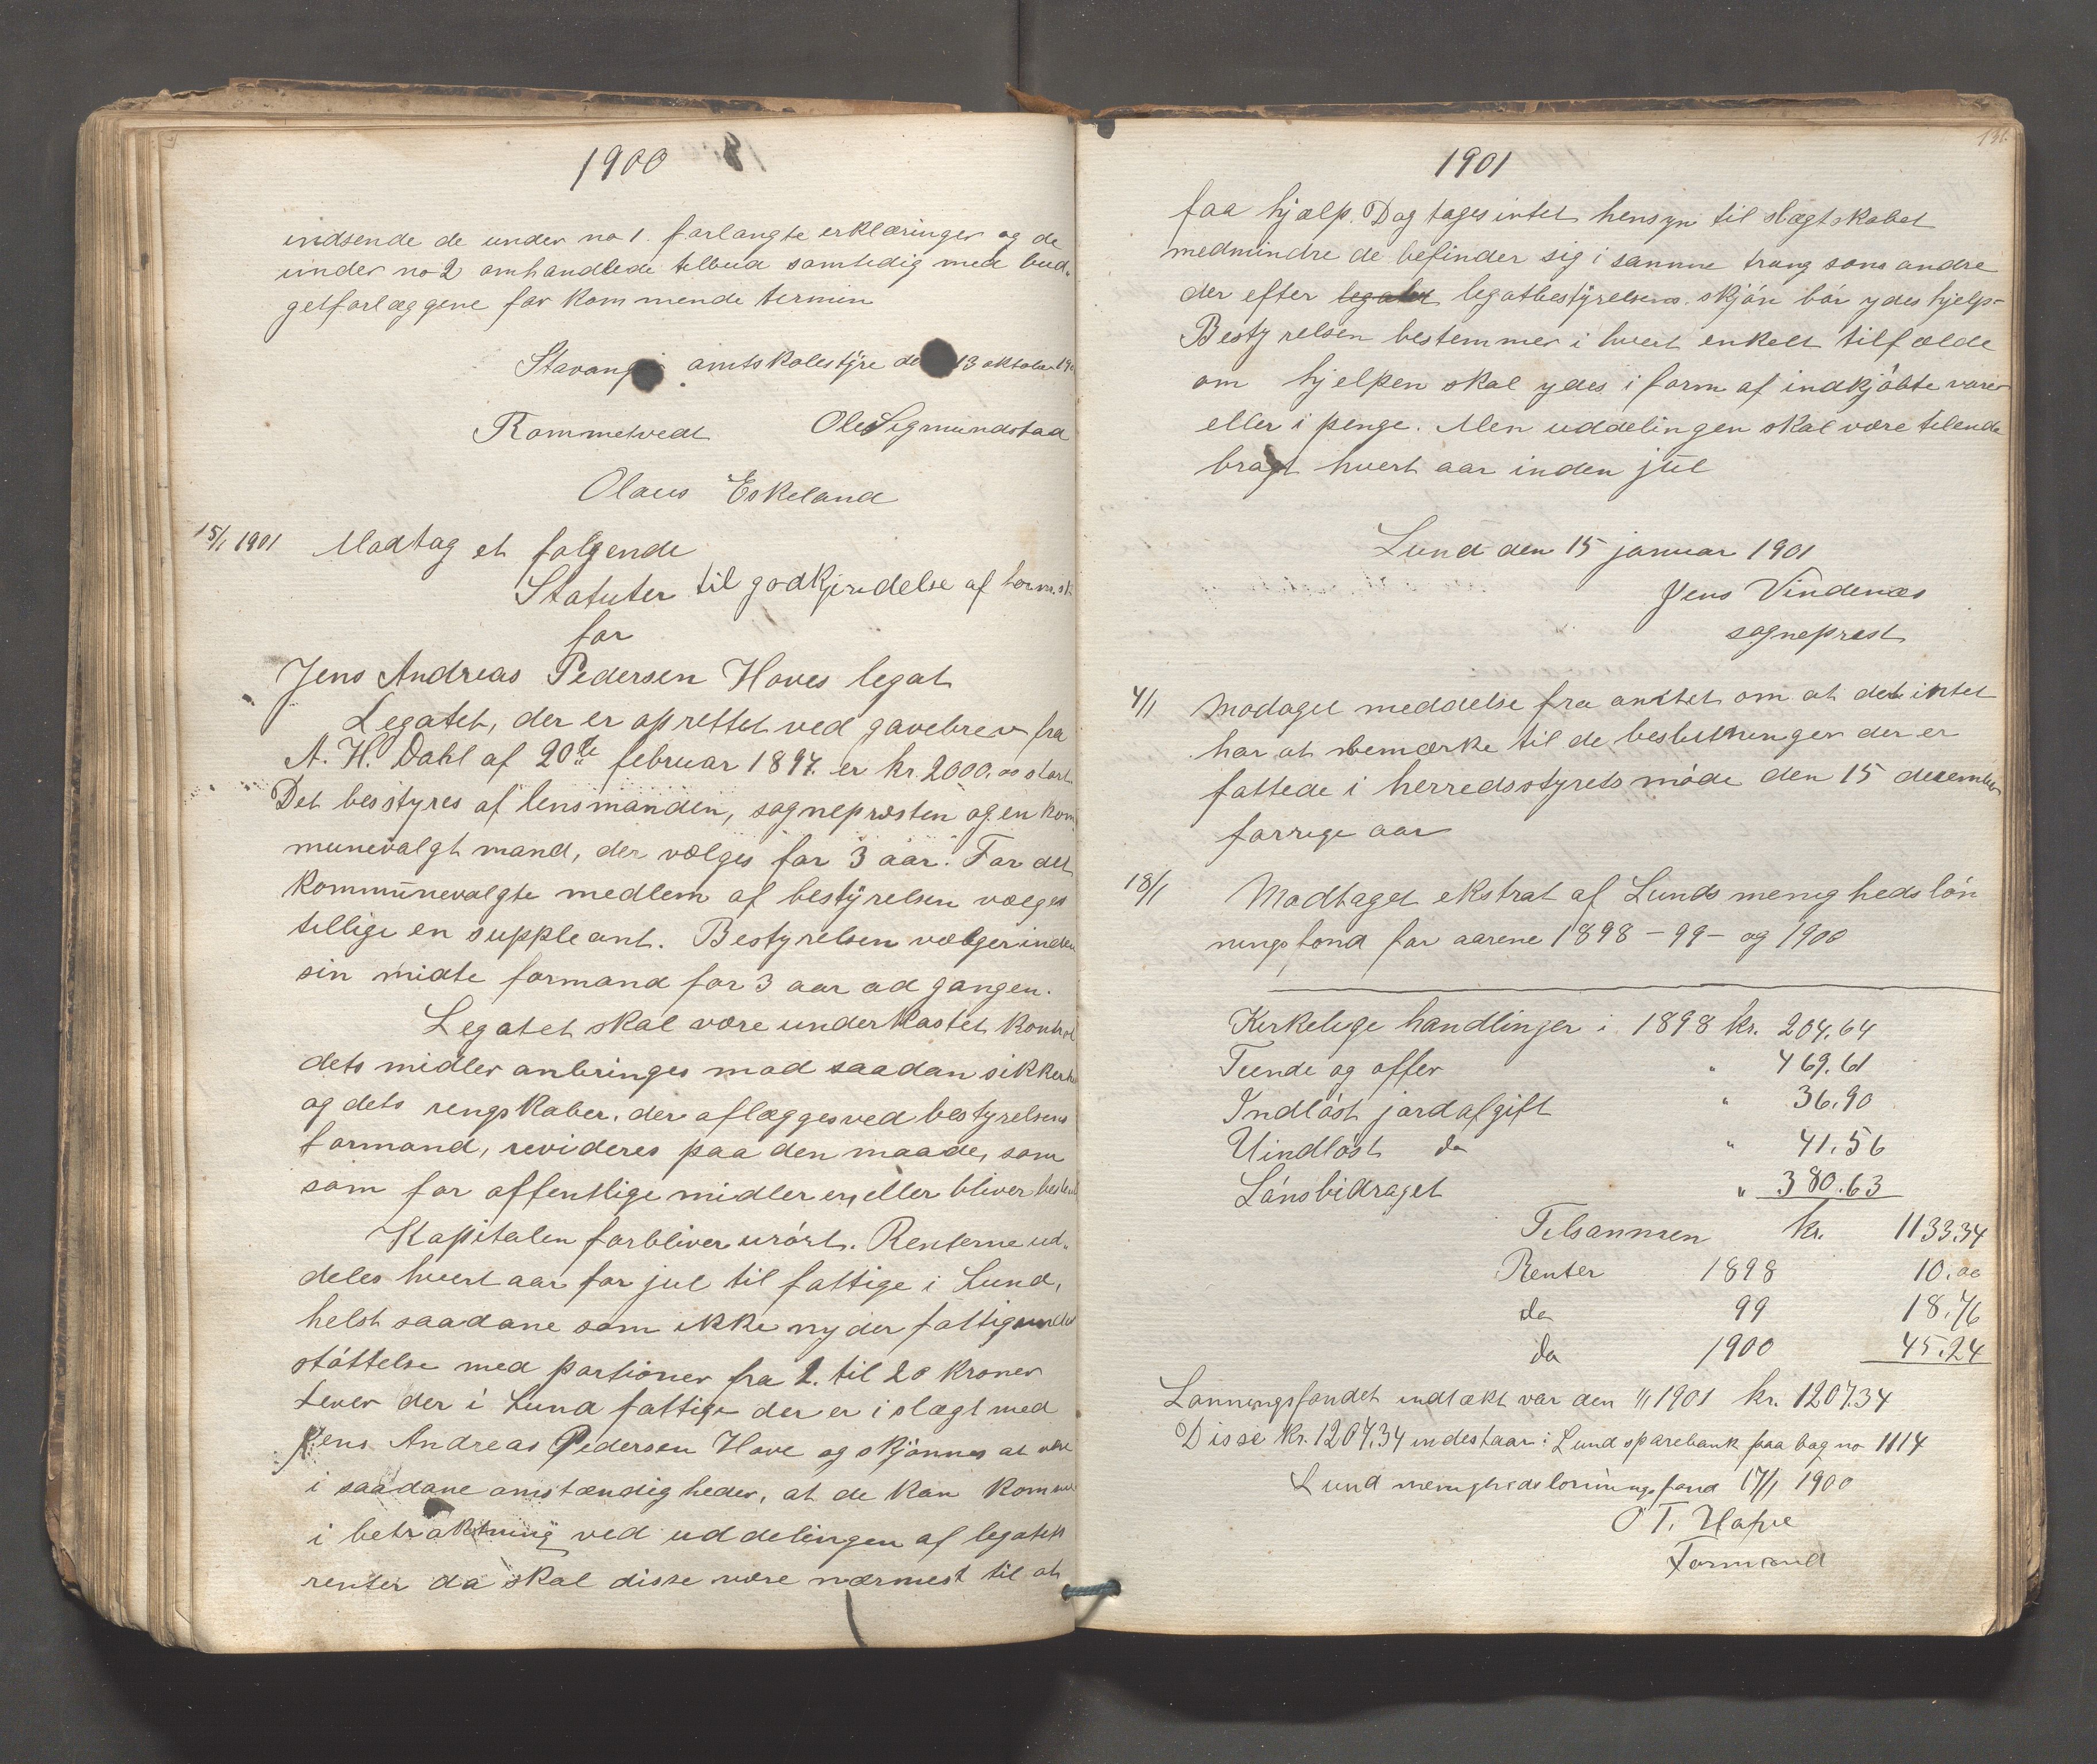 1900
indsende de under no 1. forlangte erklæringer og de
under no 2 omhandlede tilbud samtidig med bud-
getforlæggene for kommende termin
Stavanger amtskolestyre den 13 oktober 19
Rommetvedt Ole Sigmundstad
Olaus Eskeland
15/1 1901 Modtaget følgende
Statuter til godkjendelse af
for
Jens Andreas Pedersen Hoves legat
Legatet, der er oprettet ved gavebrev fra
A. H. Dahl af 20de februar 1897. er kr. 2000.00 stort
Det bestyres af lensmanden, sognepræsten og en kom
munevalgt mand, der vælges for 3 aar. For det
kommunevalgte medlem af bestyrelsen vælges
tillige en suppleant. Bestyrelsen vælger inden
sin midte formand for 3 aar ad gangen.
Legatet skal være underkastet kontrol
dets midler anbringes mod saadan sikkerhed
og dets rengskaber, der aflægges ved bestyrelsens
formand, revideres paa den maade, som
som for offentlige midler er, eller bliver bestemt
Kapitalen forbliver urórt. Renterne ud-
deles hvert aar for jul til fattige i Lund,
helst saadane som ikke nyder fattigunder
stóttelse med portioner fra 2. til 20 kroner
Lever der i Lund fattige der er i slægt med
Jens Andreas Pedersen Hove og skjónnes at være
i saadane omstændigheder, at de kan komme
i betraktning ved uddelingen af legatets
renter da skal disse være nærmest til at
1901
faa hjælp. Dog tages intet hensyn til slægtskabet
medmindre de befinder sig i samme trang som andre
der efter legatet legatbestyrelsens skjón bór ydes hjelp-
Bestyrelsen bestemmer i hvert enkelt tilfælde
om hjelpen skal ydes i form af indkjóbte varer
eller i penge. Men uddelingen skal være tilende
bragt hvert aar inden jul
Lund den 15 januar 1901
Jens Vindenæs
sogneprest
4/1 Modaget meddelse fra amtet om at det intet
har at bemærke til de beslutninger der er
fattede i herredsstyrets móde den 15 december
forrige aar
18/1 Modtaget ekstrat af Lunds menighedslón
ningsfond for aarene 1898-99- og 1900
Kirkelige handlinger i 1898 kr. 204,64
Tiende og offer " 469.61
Indlóst jordafgift " 36.90
Uindlóst do " 41.56
Lónsbidraget " 380.63
Tilsammen kr. 1133.34
Renter 1898 10.00
do 99 18.76
do 1900 45.24
Lónningsfondet indtækt var den 1/1 1901 kr. 1207.34
Disse kr. 1207.34 indestaar i Lund sparebank paa bog no 1114
Lund menighedslónningsfond 17/1 1900
O T. Hafve
Formand